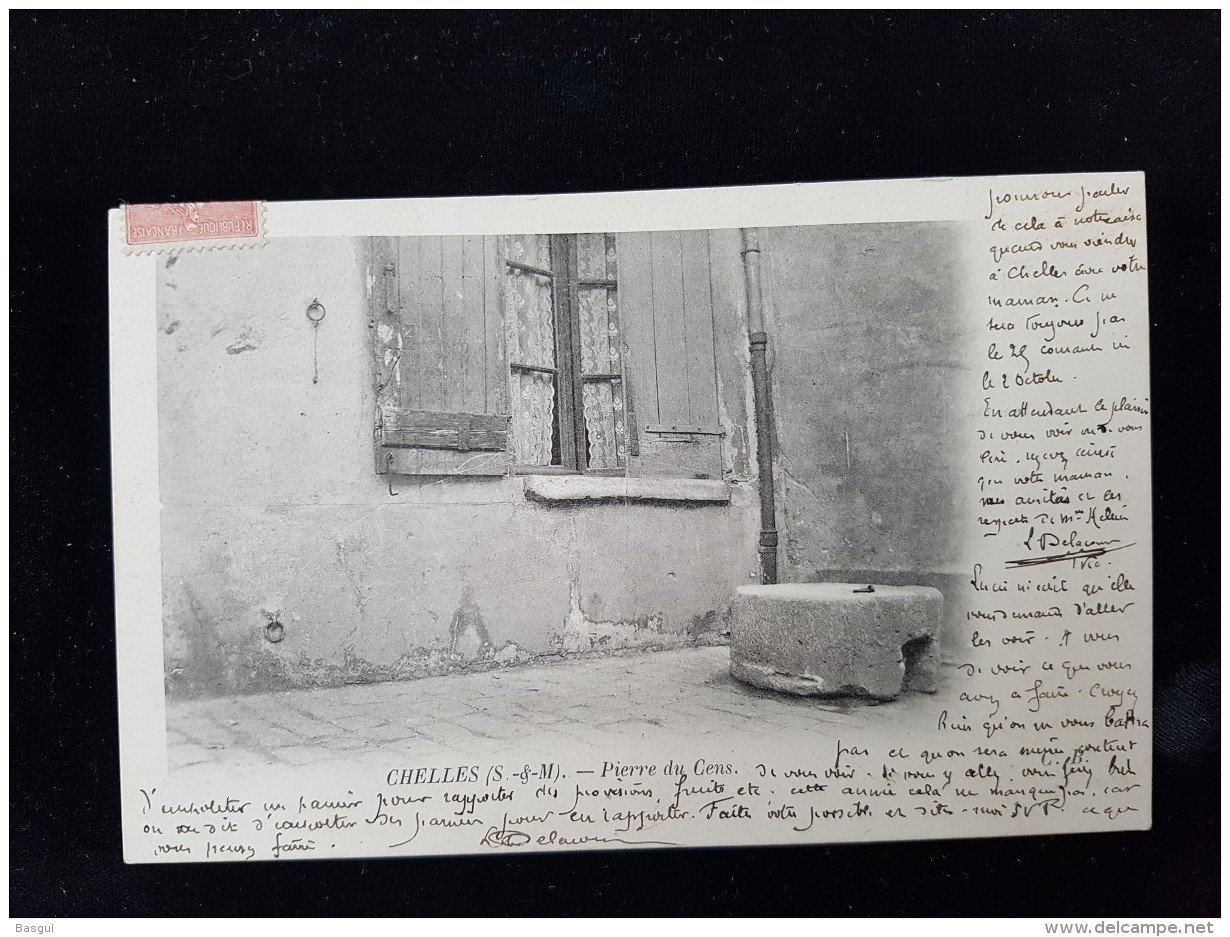 RÉPUBLIQUE FRANÇAISE
pourrons parler
de cela à notre aise
quand vous viendrez
à Chelles avec votre
maman. Ce ne
sera toujours pas
le 25 courant ni
le 2 Octobre.
En attendant le plaisir
de vous voir de vous
lire, recevez ainsi
que votre maman,
mes amitiés et les
respects de Mme
L Delacour
qu'elle
vous demande d'aller
les voir. A vous
de voir ce que vous
avez a faire. Croyez
bien qu'on ne vous battra
pas et qu'on sera même content
CHELLES (S.-&-M). — Pierre du Cens.
de vous voir. Si vous y allez, vous ferez bien
d'emporter un panier pour rapporter des provisions, fruits etc. cette année cela ne manque pas, car
on me dit d'emporter des paniers pour en rapporter. Faites votre possible et dites-moi SVP ce que
vous pensez faire. L Delacour
Basgui
www.delcampe.net